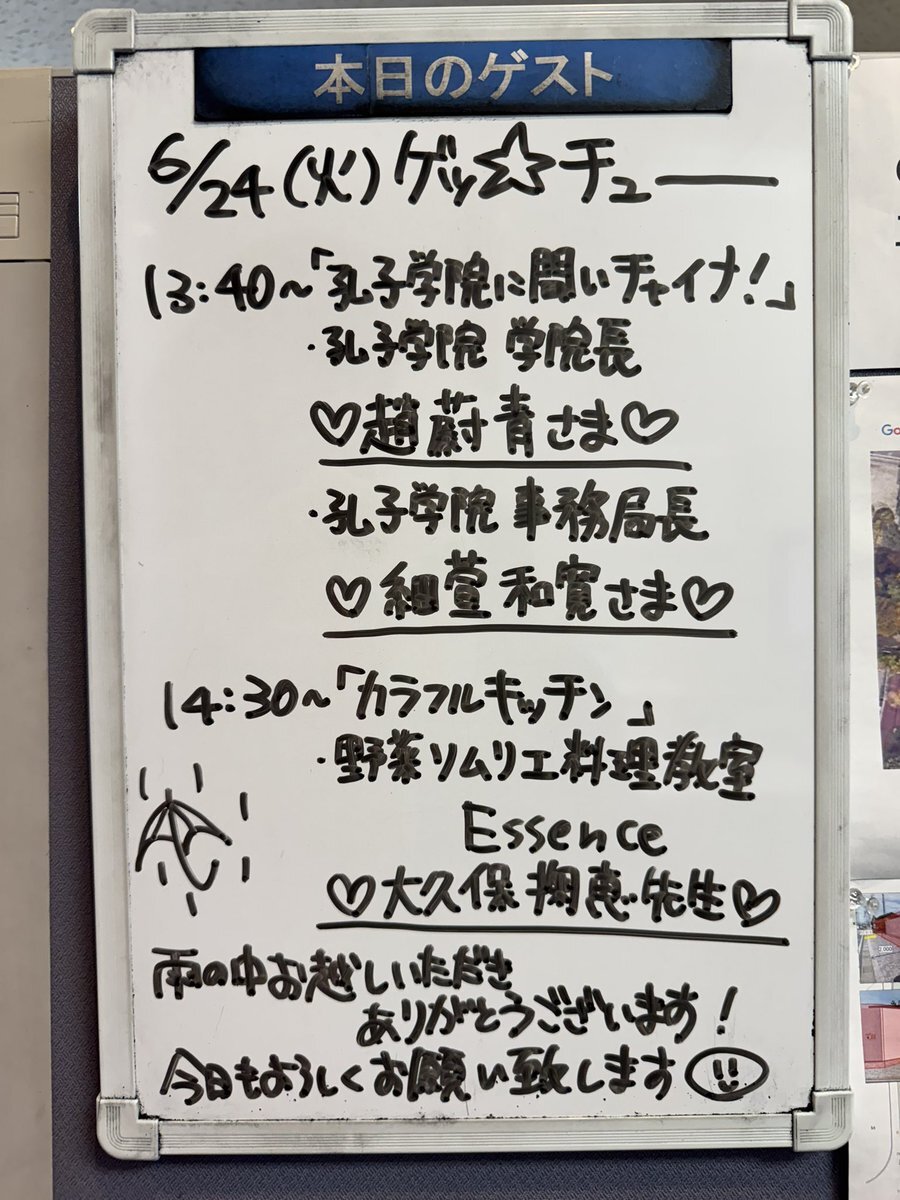 本日のゲスト
6/24(火)ゲッ☆チュー
13:40~「孔子学院に聞いチャイナ!」
・孔子学院 学院長
♡趙蔚青さま♡
・孔子学院 事務局長
♡細萱和寛さま♡
14:30~「カラフルキッチン」
・野菜ソムリエ料理教室
Essence
♡大久保翔恵先生♡
雨の中お越しいただき
ありがとうございます!
今日もよろしくお願い致します